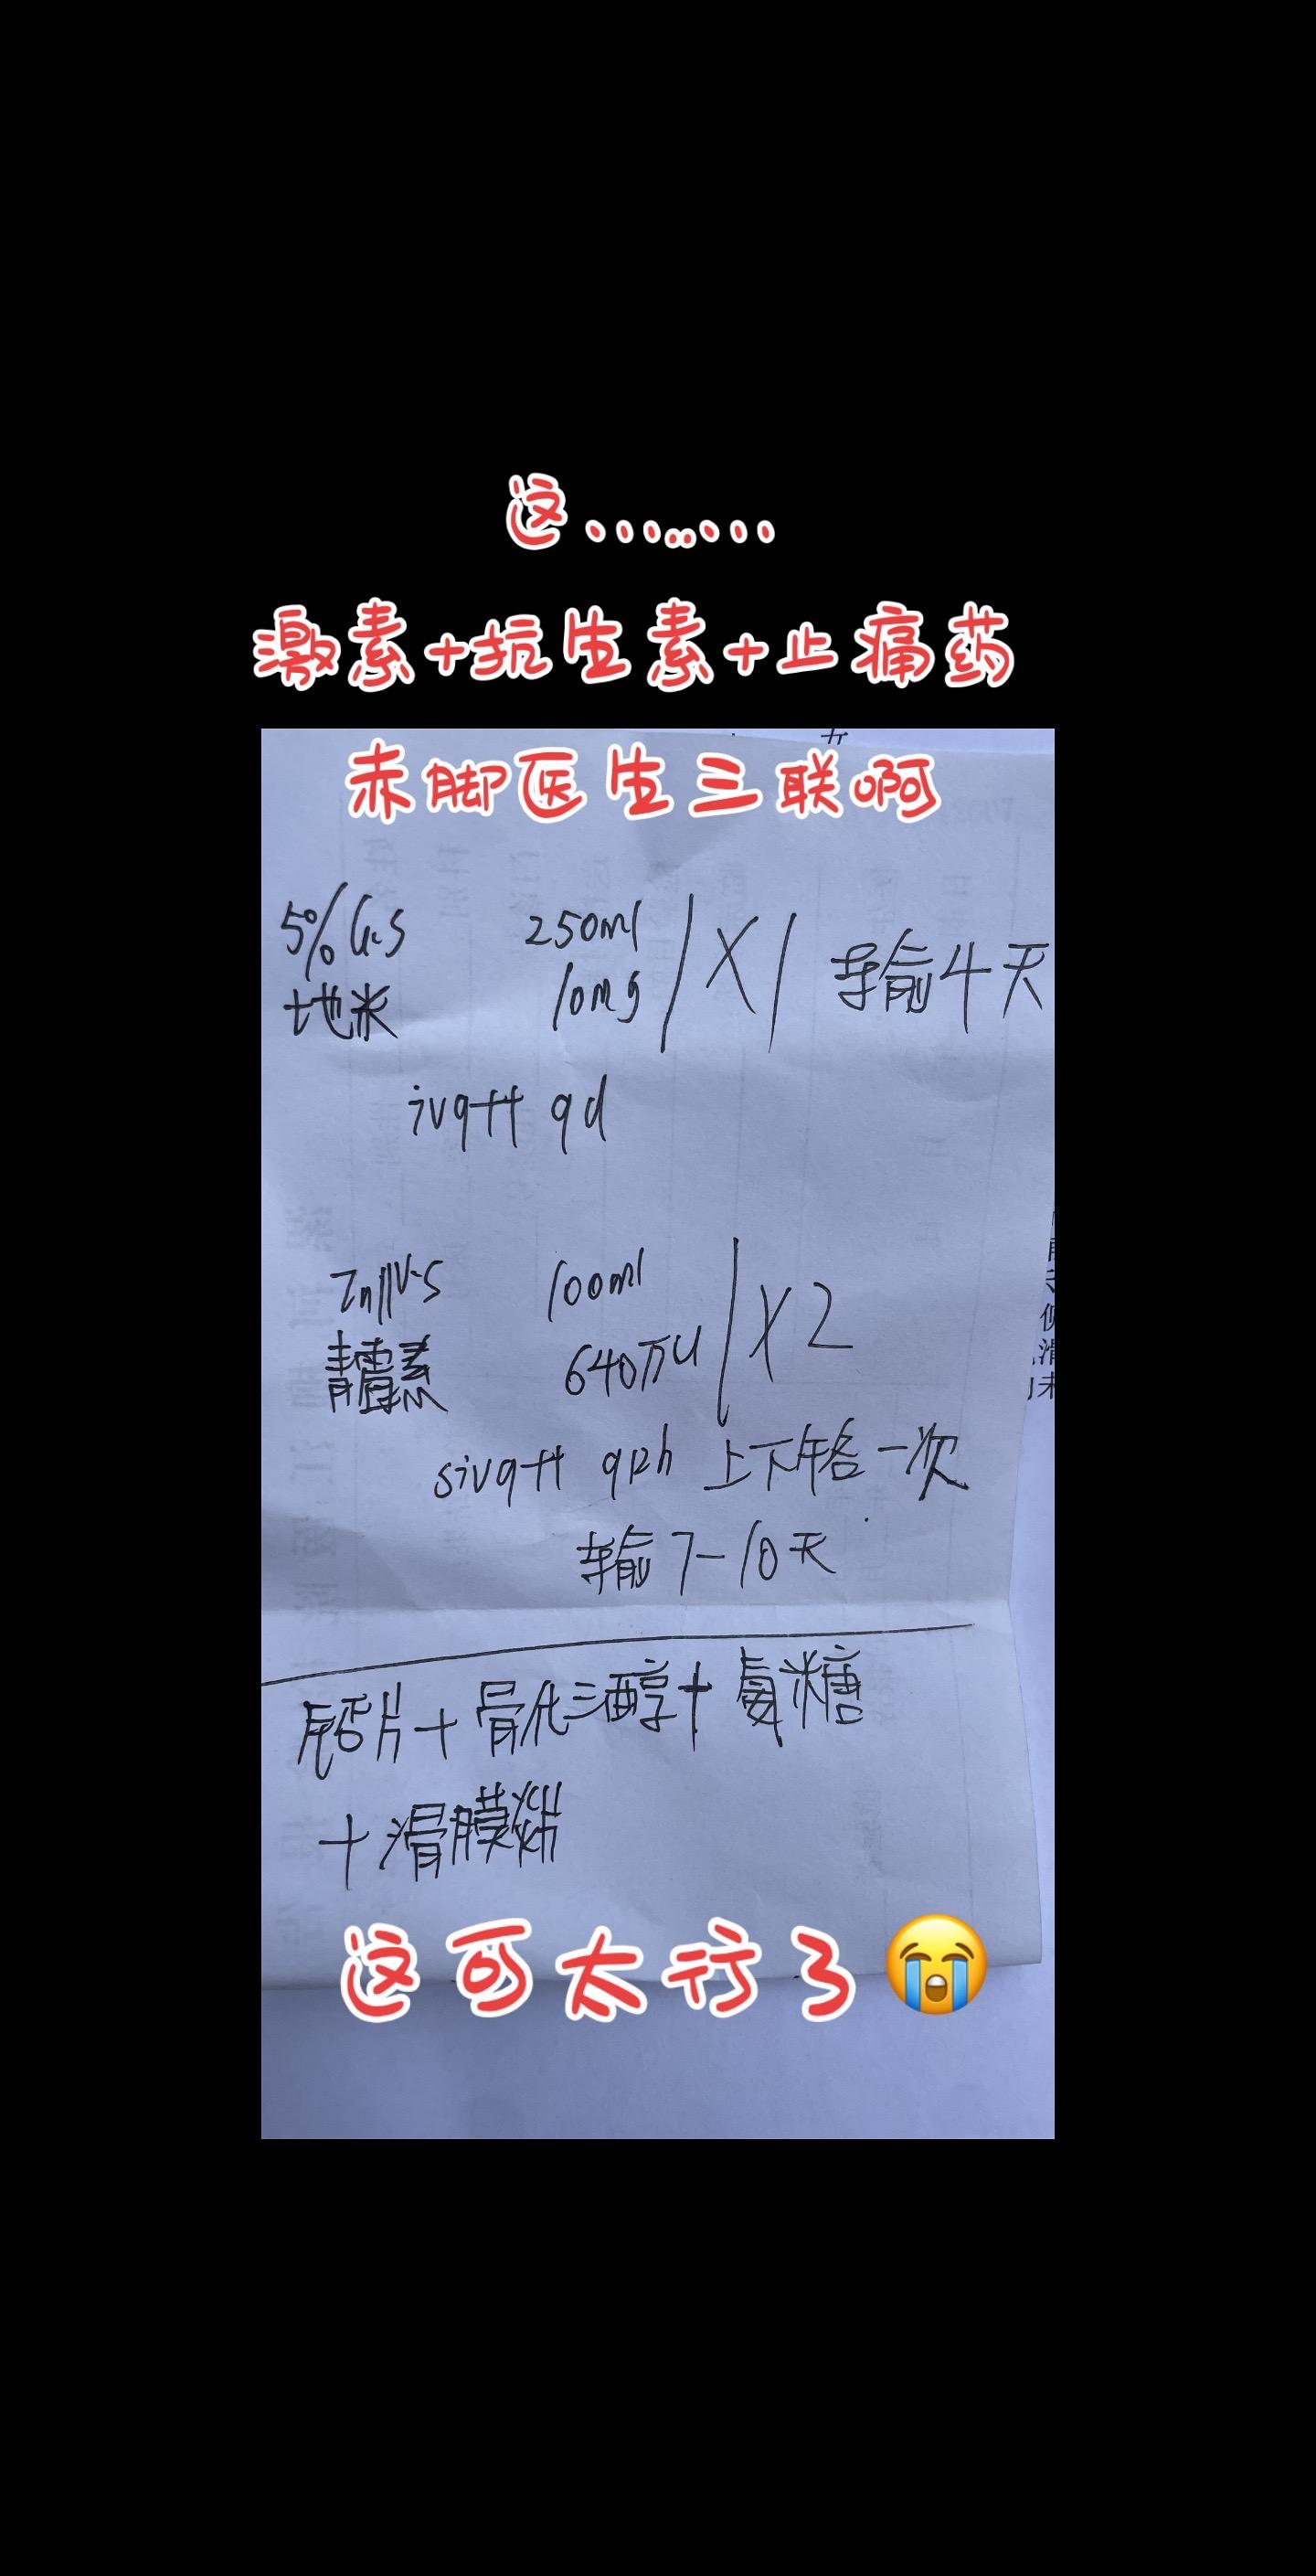 这.........
激素+抗生素+止痛药
赤脚医生三联啊
5% G.S 250ml
地米 10mg X1 输4天
ivgtt qd
N.S 100ml
青霉素 640万U X2
sivgtt q12h 上下午各一次
输7-10天
钙片+骨化三醇+氨糖
+滑膜炎片
这可太行了😭